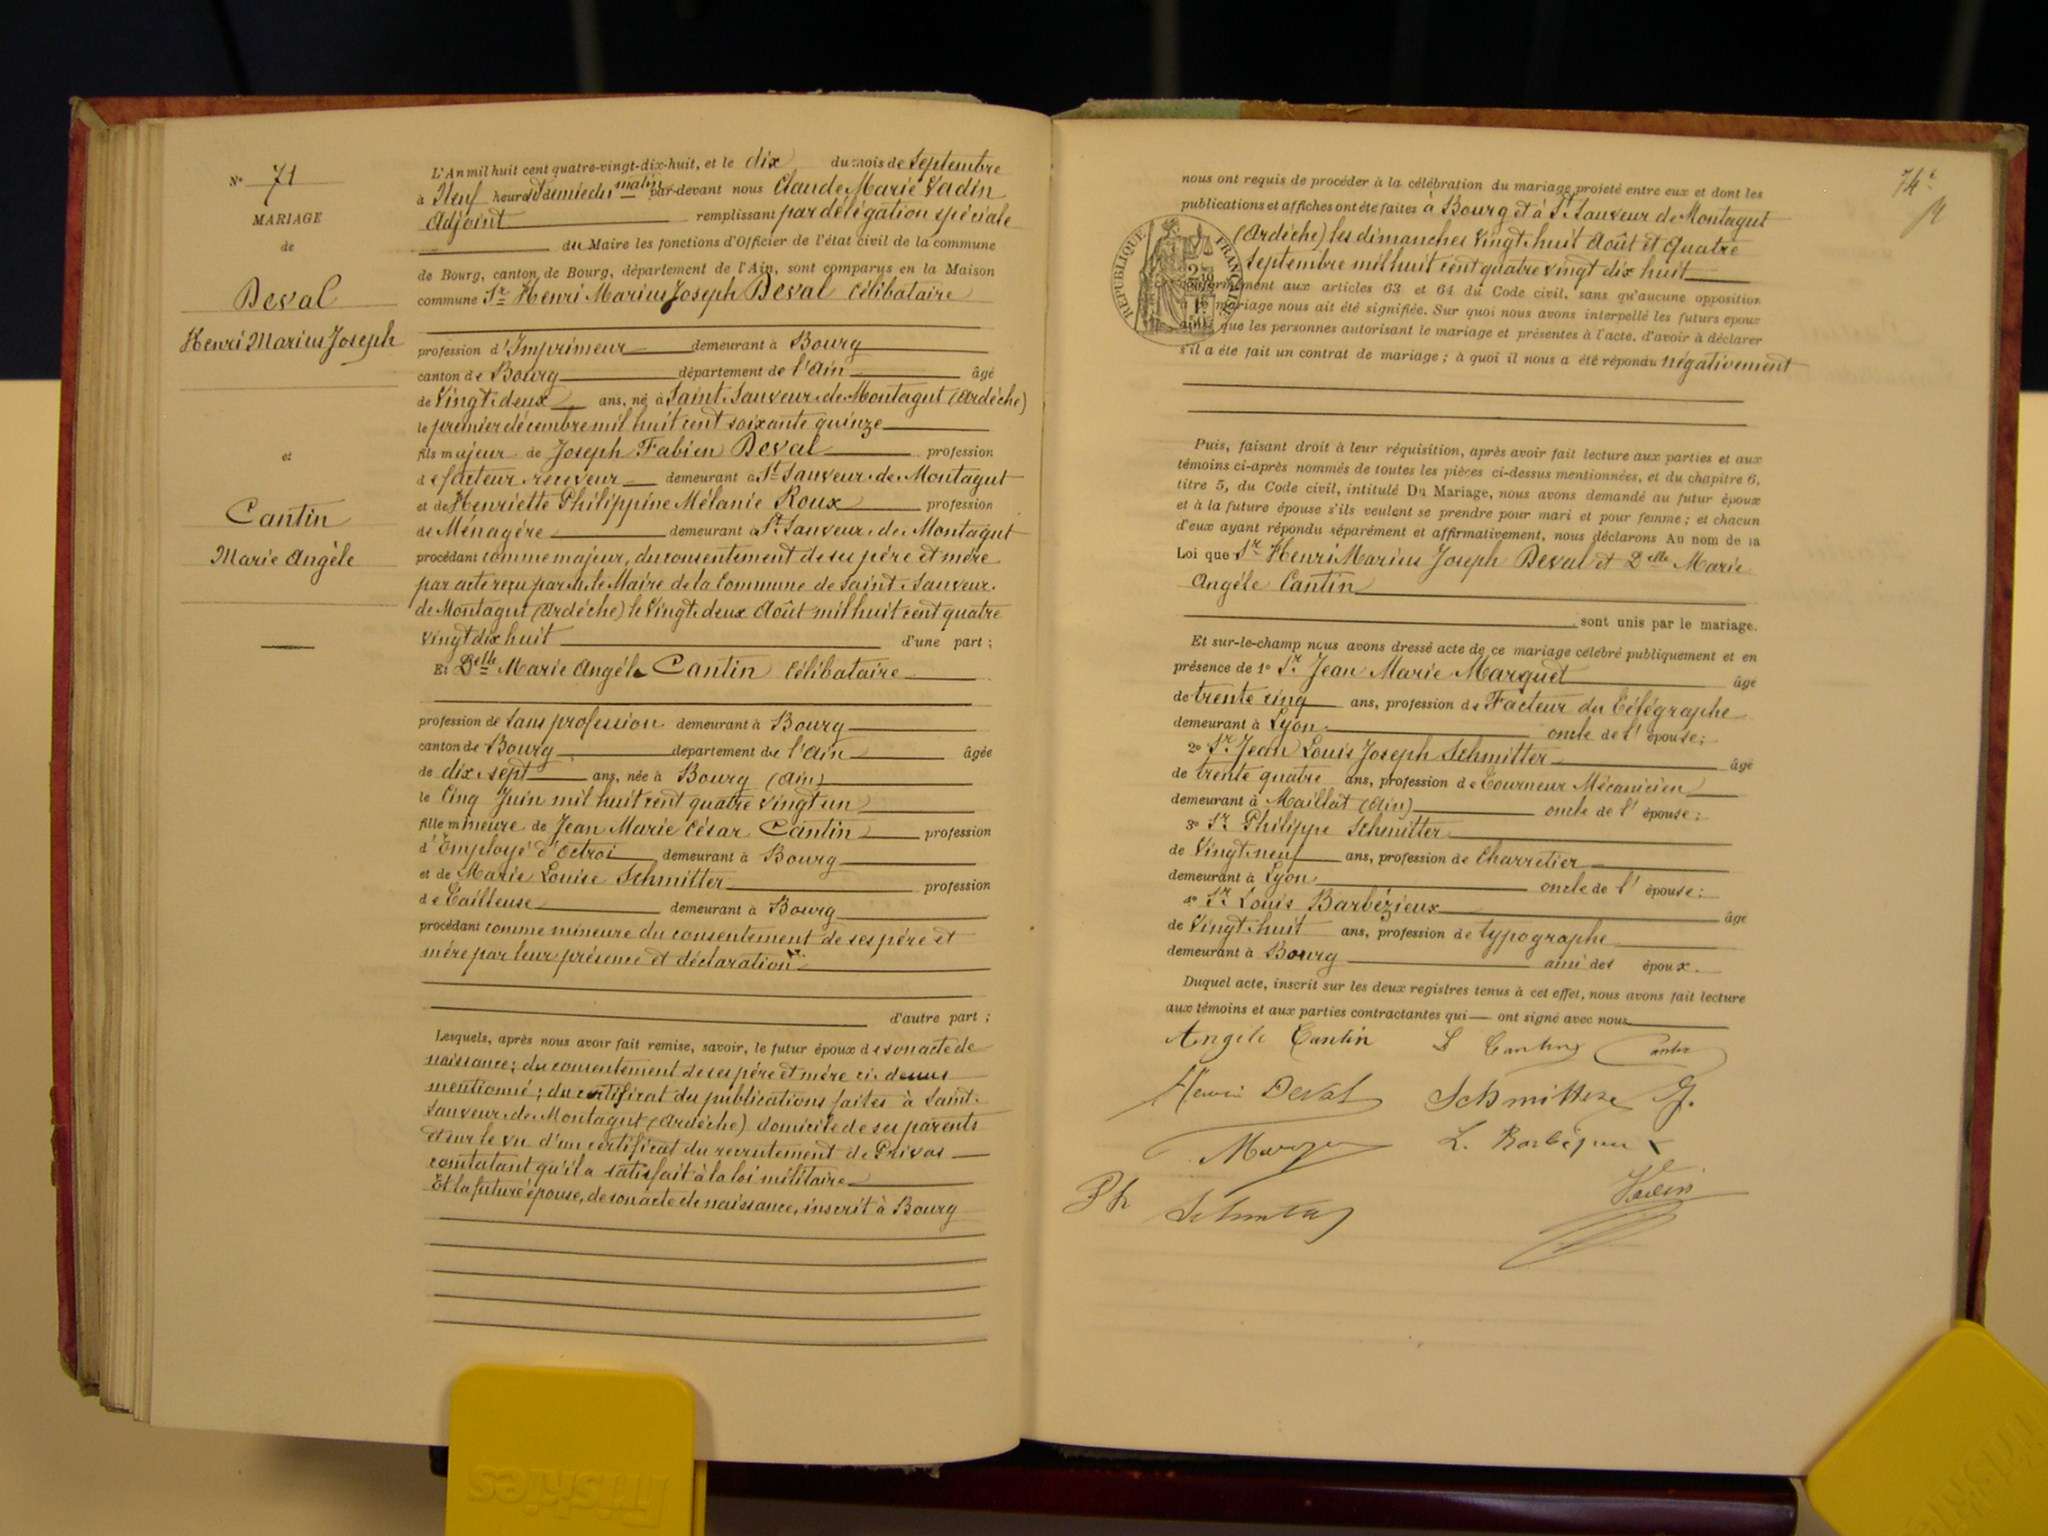 N° 71
MARIAGE
de
Deval
Henri Marius Joseph
et
Cantin
Marie Angèle
L'An mil huit cent quatre-vingt-dix-huit, et le dix du mois de Septembre
à Neuf heures et demie du matin par-devant nous Claude Marie Vadin
Adjoint remplissant par délégation spéciale
du Maire les fonctions d'Officier de l'état civil de la commune
de Bourg, canton de Bourg, département de l'Ain, sont comparus en la Maison
commune Sr Henri Marius Joseph Deval Célibataire
profession d'Imprimeur demeurant à Bourg
canton de Bourg département de l'Ain âgé
de Vingt deux ans, né à Saint Sauveur de Montagut (Ardèche)
le premier décembre mil huit cent soixante quinze
fils majeur de Joseph Fabien Deval profession
de facteur receveur demeurant à St Sauveur de Montagut
et de Henriette Philippine Mélanie Roux profession
de Ménagère demeurant à St Sauveur de Montagut
procédant comme majeur, du consentement de ses père et mère
par acte reçu par M. le Maire de la Commune de Saint Sauveur
de Montagut (Ardèche) le Vingt deux Août mil huit cent quatre
vingt dix huit d'une part ;
Et Delle Marie Angèle Cantin Célibataire
profession de Sans profession demeurant à Bourg
canton de Bourg département de l'Ain âgée
de dix sept ans, née à Bourg (Ain)
le Cinq Juin mil huit cent quatre vingt un
fille mineure de Jean Marie César Cantin profession
d'Employé d'Octroi demeurant à Bourg
et de Marie Louise Schmitter profession
de Tailleuse demeurant à Bourg
procédant comme mineure du consentement de ses père et
mère par leur présence et déclaration
d'autre part ;
Lesquels, après nous avoir fait remise, savoir, le futur époux de son acte de
naissance ; du consentement de ses père et mère ci-dessus
mentionné ; du certificat du publications faites à Saint-
Sauveur de Montagut (Ardèche) domicile de ses parents
et sur le vu d'un certificat du recrutement de Privas
constatant qu'il a satisfait à la loi militaire
Et la future épouse, de son acte de naissance, inscrit à Bourg
74e
nous ont requis de procéder à la célébration du mariage projeté entre eux et dont les
publications et affiches ont été faites à Bourg et à St Sauveur de Montagut
(Ardèche) les dimanches Vingt huit Août et Quatre
Septembre mil huit cent quatre vingt dix huit
RÉPUBLIQUE FRANÇAISE
conformément aux articles 63 et 64 du Code civil, sans qu'aucune opposition
à ce mariage nous ait été signifiée. Sur quoi nous avons interpellé les futurs époux
que les personnes autorisant le mariage et présentes à l'acte, d'avoir à déclarer
s'il a été fait un contrat de mariage ; à quoi il nous a été répondu négativement
Puis, faisant droit à leur réquisition, après avoir fait lecture aux parties et aux
témoins ci-après nommés de toutes les pièces ci-dessus mentionnées, et du chapitre 6,
titre 5, du Code civil, intitulé Du Mariage, nous avons demandé au futur époux
et à la future épouse s'ils veulent se prendre pour mari et pour femme ; et chacun
d'eux ayant répondu séparément et affirmativement, nous déclarons Au nom de la
Loi que Sr Henri Marius Joseph Deval et Delle Marie
Angèle Cantin
sont unis par le mariage.
Et sur-le-champ nous avons dressé acte de ce mariage célébré publiquement et en
présence de 1° Sr Jean Marie Marguet âgé
de trente cinq ans, profession de Facteur du Télégraphe
demeurant à Lyon oncle de l'épouse ;
2° Sr Jean Louis Joseph Schmitter âgé
de trente quatre ans, profession de Tourneur Mécanicien
demeurant à Maillat (Ain) oncle de l'épouse ;
3° Sr Philippe Schmitter
de Vingt neuf ans, profession de Charretier
demeurant à Lyon oncle de l'épouse ;
4° Sr Louis Barbézieux âgé
de Vingt huit ans, profession de typographe
demeurant à Bourg ami des époux.
Duquel acte, inscrit sur les deux registres tenus à cet effet, nous avons fait lecture
aux témoins et aux parties contractantes qui ont signé avec nous
Angèle Cantin
Henri Deval Schmitter J.
L. Barbézieux
Ph Schmitter Vadin